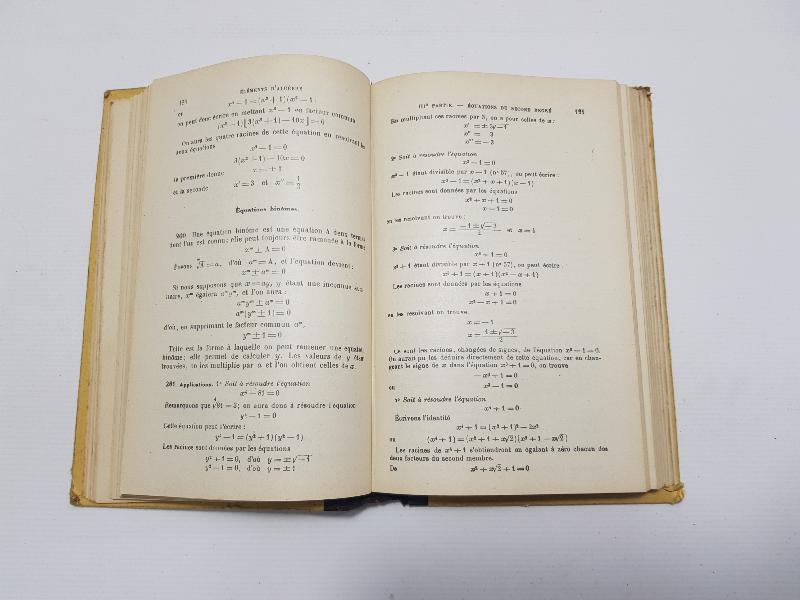 124
ÉLÉMENTS D'ALGÈBRE
x⁴ − 1 = (x² + 1)(x² − 1)
et
on peut donc écrire en mettant x² − 1 en facteur commun
(x² − 1)[3(x² + 1) − 10x] = 0
On aura les quatre racines de cette équation en résolvant les
deux équations
x² − 1 = 0
3(x² + 1) − 10x = 0
la première donne x = ± 1
et la seconde x' = 3 et x'' = 1/2
Équations binômes.
200. Une équation binôme est une équation à deux termes
dont l'un est connu; elle peut toujours être ramenée à la forme
xᵐ ± A = 0
Posons ᵐ√A = a, d'où aᵐ = A, et l'équation devient :
xᵐ ± aᵐ = 0
Si nous supposons que x = ay, y étant une inconnue auxi-
liaire, xᵐ égalera aᵐyᵐ, et l'on aura :
aᵐyᵐ ± aᵐ = 0
aᵐ(yᵐ ± 1) = 0
d'où, en supprimant le facteur commun aᵐ,
yᵐ ± 1 = 0
Telle est la forme à laquelle on peut ramener une équation
binôme; elle permet de calculer y. Les valeurs de y étant
trouvées, on les multiplie par a et l'on obtient celles de x.
201. Applications. 1° Soit à résoudre l'équation
x⁴ − 81 = 0
Remarquons que ⁴√81 = 3; on aura donc à résoudre l'équation
y⁴ − 1 = 0
Cette équation peut s'écrire :
y⁴ − 1 = (y² + 1)(y² − 1)
Les racines sont données par les équations
y² + 1 = 0, d'où y = ± √−1
y² − 1 = 0, d'où y = ± 1
IIIᵉ PARTIE. — ÉQUATIONS DU SECOND DEGRÉ
125
En multipliant ces racines par 3, on a pour celles de x :
x' = ± 3√−1
x'' = 3
x''' = − 3
2° Soit à résoudre l'équation
x³ − 1 = 0
x³ − 1 étant divisible par x − 1 (n° 57), on peut écrire :
x³ − 1 = (x² + x + 1)(x − 1)
Les racines sont données par les équations
x² + x + 1 = 0
x − 1 = 0
en les résolvant on trouve :
x = (−1 ± √−3)/2 et x = 1
3° Soit à résoudre l'équation
x³ + 1 = 0
x³ + 1 étant divisible par x + 1 (n° 57), on peut écrire :
x³ + 1 = (x + 1)(x² − x + 1)
Les racines sont données par les équations
x + 1 = 0
x² − x + 1 = 0
en les résolvant on trouve.
x = − 1
x = (1 ± √−3)/2
Ce sont les racines, changées de signes, de l'équation x³ − 1 = 0.
On aurait pu les déduire directement de cette équation, car en chan-
geant le signe de x dans l'équation x³ + 1 = 0, on trouve
− x³ + 1 = 0
ou x³ − 1 = 0
4° Soit à résoudre l'équation
x⁴ + 1 = 0
Écrivons l'identité
x⁴ + 1 = (x² + 1)² − 2x²
ou (x⁴ + 1) = (x² + 1 + x√2)(x² + 1 − x√2)
Les racines de x⁴ + 1 s'obtiendront en égalant à zéro chacun des
deux facteurs du second membre.
De x² + x√2 + 1 = 0